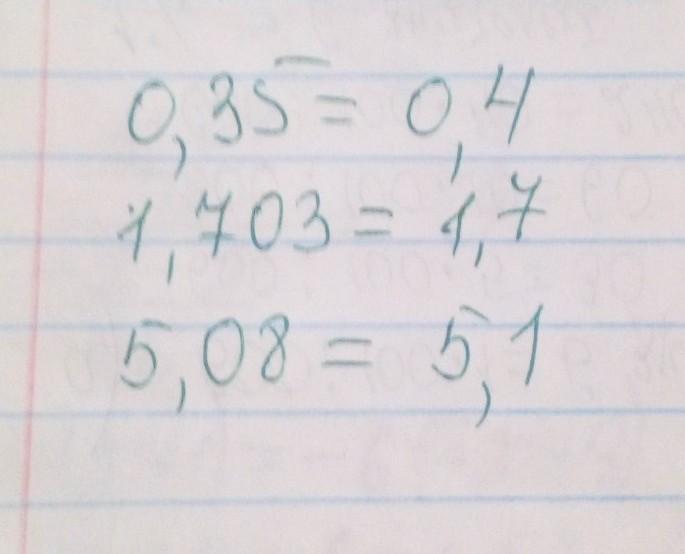 0,35 = 0,4
1,703 = 1,7
5,08 = 5,1